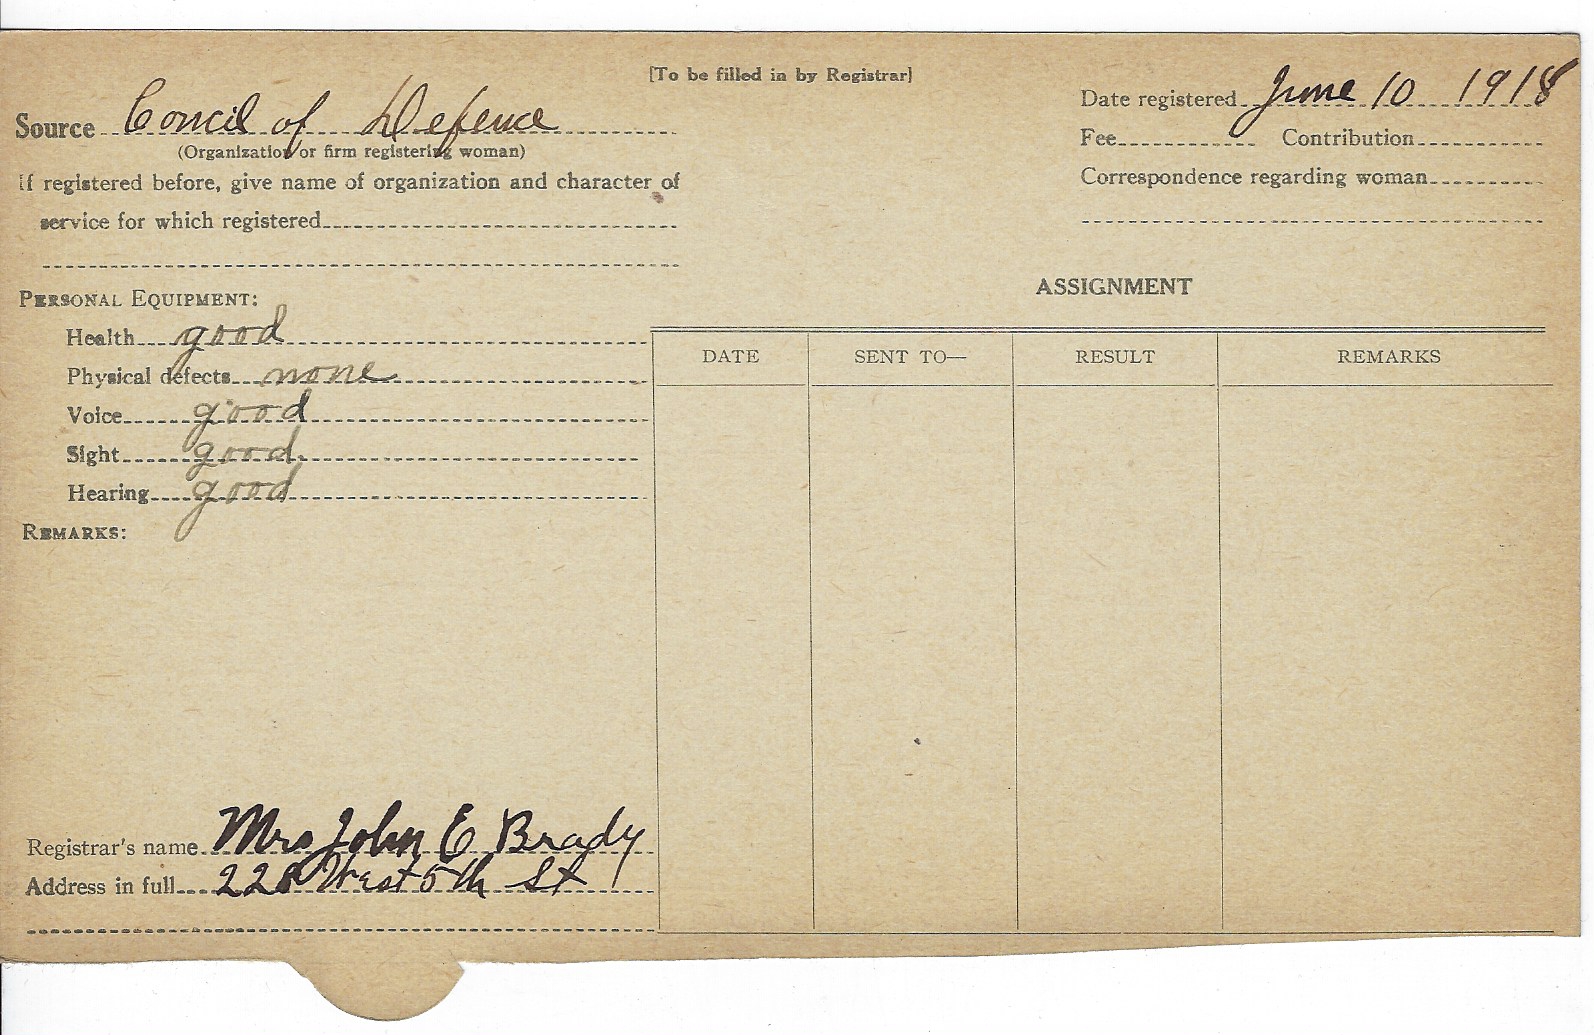 [To be filled in by Registrar]
Source Concil of Defence
(Organization or firm registering woman)
If registered before, give name of organization and character of
service for which registered
Date registered June 10 1918
Fee Contribution
Correspondence regarding woman
PERSONAL EQUIPMENT:
Health good
Physical defects none
Voice good
Sight good
Hearing good
REMARKS:
ASSIGNMENT
DATE SENT TO— RESULT REMARKS
Registrar's name Mrs John E Brady
Address in full 228 West 5th St